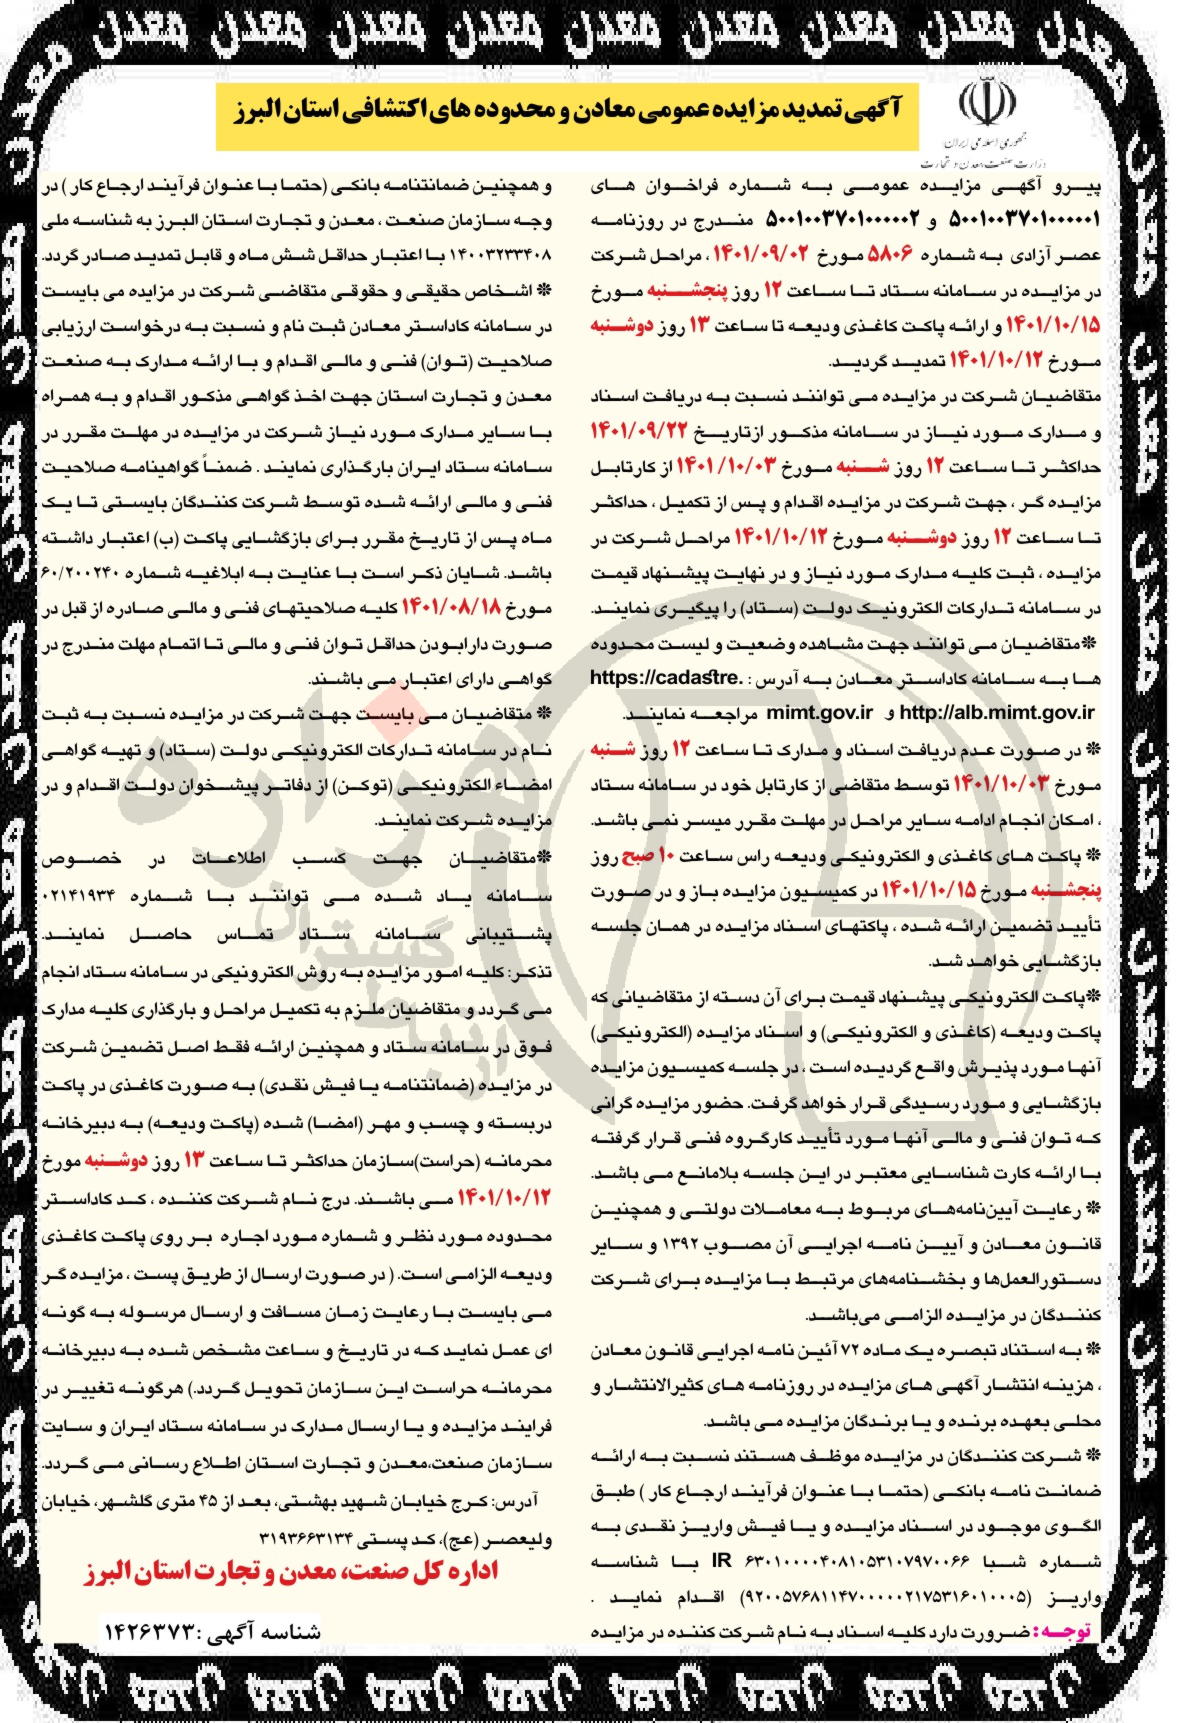 معدن معدن معدن معدن معدن معدن معدن معدن معدن
جمهوری اسلامی ایران
وزارت صنعت، معدن و تجارت
آگهی تمدید مزایده عمومی معادن و محدوده های اکتشافی استان البرز
پیرو آگهی مزایده عمومی به شماره فراخوان های
۵۰۰۱۰۰۳۷۰۱۰۰۰۰۰۱ و ۵۰۰۱۰۰۳۷۰۱۰۰۰۰۰۲ مندرج در روزنامه
عصر آزادی به شماره ۵۸۰۶ مورخ ۱۴۰۱/۰۹/۰۲ ، مراحل شرکت
در مزایده در سامانه ستاد تا ساعت ۱۲ روز پنجشنبه مورخ
۱۴۰۱/۱۰/۱۵ و ارائه پاکت کاغذی ودیعه تا ساعت ۱۳ روز دوشنبه
مورخ ۱۴۰۱/۱۰/۱۲ تمدید گردید.
متقاضیان شرکت در مزایده می توانند نسبت به دریافت اسناد
و مدارک مورد نیاز در سامانه مذکور ازتاریخ ۱۴۰۱/۰۹/۲۲
حداکثر تا ساعت ۱۲ روز شنبه مورخ ۱۴۰۱/۱۰/۰۳ از کارتابل
مزایده گر ، جهت شرکت در مزایده اقدام و پس از تکمیل ، حداکثر
تا ساعت ۱۲ روز دوشنبه مورخ ۱۴۰۱/۱۰/۱۲ مراحل شرکت در
مزایده ، ثبت کلیه مدارک مورد نیاز و در نهایت پیشنهاد قیمت
در سامانه تدارکات الکترونیک دولت (ستاد) را پیگیری نمایند.
❊متقاضیان می توانند جهت مشاهده وضعیت و لیست محدوده
ها به سامانه کاداستر معادن به آدرس : https://cadastre.
mimt.gov.ir و http://alb.mimt.gov.ir مراجعه نمایند.
❊ در صورت عدم دریافت اسناد و مدارک تا ساعت ۱۲ روز شنبه
مورخ ۱۴۰۱/۱۰/۰۳ توسط متقاضی از کارتابل خود در سامانه ستاد
، امکان انجام ادامه سایر مراحل در مهلت مقرر میسر نمی باشد.
❊ پاکت های کاغذی و الکترونیکی ودیعه راس ساعت ۱۰ صبح روز
پنجشنبه مورخ ۱۴۰۱/۱۰/۱۵ در کمیسیون مزایده باز و در صورت
تأیید تضمین ارائه شده ، پاکتهای اسناد مزایده در همان جلسه
بازگشایی خواهد شد.
❊پاکت الکترونیکی پیشنهاد قیمت برای آن دسته از متقاضیانی که
پاکت ودیعه (کاغذی و الکترونیکی) و اسناد مزایده (الکترونیکی)
آنها مورد پذیرش واقع گردیده است ، در جلسه کمیسیون مزایده
بازگشایی و مورد رسیدگی قرار خواهد گرفت. حضور مزایده گرانی
که توان فنی و مالی آنها مورد تأیید کارگروه فنی قرار گرفته
با ارائه کارت شناسایی معتبر در این جلسه بلامانع می باشد.
❊ رعایت آیین‌نامه‌های مربوط به معاملات دولتی و همچنین
قانون معادن و آیین نامه اجرایی آن مصوب ۱۳۹۲ و سایر
دستورالعمل‌ها و بخشنامه‌های مرتبط با مزایده برای شرکت
کنندگان در مزایده الزامی می‌باشد.
❊ به استناد تبصره یک ماده ۷۲ آئین نامه اجرایی قانون معادن
، هزینه انتشار آگهی های مزایده در روزنامه های کثیرالانتشار و
محلی بعهده برنده و یا برندگان مزایده می باشد.
❊ شرکت کنندگان در مزایده موظف هستند نسبت به ارائه
ضمانت نامه بانکی (حتما با عنوان فرآیند ارجاع کار ) طبق
الگوی موجود در اسناد مزایده و یا فیش واریز نقدی به
شماره شبا IR ۶۳۰۱۰۰۰۰۴۰۸۱۰۵۳۱۰۷۹۷۰۰۶۶ با شناسه
واریز (۹۲۰۰۵۷۶۸۱۱۴۷۰۰۰۰۰۲۱۷۵۳۱۶۰۱۰۰۰۵) اقدام نمایید .
توجه : ضرورت دارد کلیه اسناد به نام شرکت کننده در مزایده
و همچنین ضمانتنامه بانکی (حتما با عنوان فرآیند ارجاع کار ) در
وجه سازمان صنعت ، معدن و تجارت استان البرز به شناسه ملی
۱۴۰۰۳۲۳۳۴۰۸ با اعتبار حداقل شش ماه و قابل تمدید صادر گردد.
❊ اشخاص حقیقی و حقوقی متقاضی شرکت در مزایده می بایست
در سامانه کاداستر معادن ثبت نام و نسبت به درخواست ارزیابی
صلاحیت (توان) فنی و مالی اقدام و با ارائه مدارک به صنعت
معدن و تجارت استان جهت اخذ گواهی مذکور اقدام و به همراه
با سایر مدارک مورد نیاز شرکت در مزایده در مهلت مقرر در
سامانه ستاد ایران بارگذاری نمایند . ضمناً گواهینامه صلاحیت
فنی و مالی ارائه شده توسط شرکت کنندگان بایستی تا یک
ماه پس از تاریخ مقرر برای بازگشایی پاکت (ب) اعتبار داشته
باشد. شایان ذکر است با عنایت به ابلاغیه شماره ۶۰/۲۰۰۲۴۰
مورخ ۱۴۰۱/۰۸/۱۸ کلیه صلاحیتهای فنی و مالی صادره از قبل در
صورت دارابودن حداقل توان فنی و مالی تا اتمام مهلت مندرج در
گواهی دارای اعتبار می باشند.
❊ متقاضیان می بایست جهت شرکت در مزایده نسبت به ثبت
نام در سامانه تدارکات الکترونیکی دولت (ستاد) و تهیه گواهی
امضاء الکترونیکی (توکن) از دفاتر پیشخوان دولت اقدام و در
مزایده شرکت نمایند.
❊متقاضیان جهت کسب اطلاعات در خصوص
سامانه یاد شده می توانند با شماره ۰۲۱۴۱۹۳۴
پشتیبانی سامانه ستاد تماس حاصل نمایند.
تذکر: کلیه امور مزایده به روش الکترونیکی در سامانه ستاد انجام
می گردد و متقاضیان ملزم به تکمیل مراحل و بارگذاری کلیه مدارک
فوق در سامانه ستاد و همچنین ارائه فقط اصل تضمین شرکت
در مزایده (ضمانتنامه یا فیش نقدی) به صورت کاغذی در پاکت
دربسته و چسب و مهر (امضا) شده (پاکت ودیعه) به دبیرخانه
محرمانه (حراست)سازمان حداکثر تا ساعت ۱۳ روز دوشنبه مورخ
۱۴۰۱/۱۰/۱۲ می باشند. درج نام شرکت کننده ، کد کاداستر
محدوده مورد نظر و شماره مورد اجاره بر روی پاکت کاغذی
ودیعه الزامی است. ( در صورت ارسال از طریق پست ، مزایده گر
می بایست با رعایت زمان مسافت و ارسال مرسوله به گونه
ای عمل نماید که در تاریخ و ساعت مشخص شده به دبیرخانه
محرمانه حراست این سازمان تحویل گردد.) هرگونه تغییر در
فرایند مزایده و یا ارسال مدارک در سامانه ستاد ایران و سایت
سازمان صنعت،معدن و تجارت استان اطلاع رسانی می گردد.
آدرس: کرج خیابان شهید بهشتی، بعد از ۴۵ متری گلشهر، خیابان
ولیعصر (عج)، کد پستی ۳۱۹۳۶۶۳۱۳۴
اداره کل صنعت، معدن و تجارت استان البرز
شناسه آگهی :۱۴۲۶۳۷۳